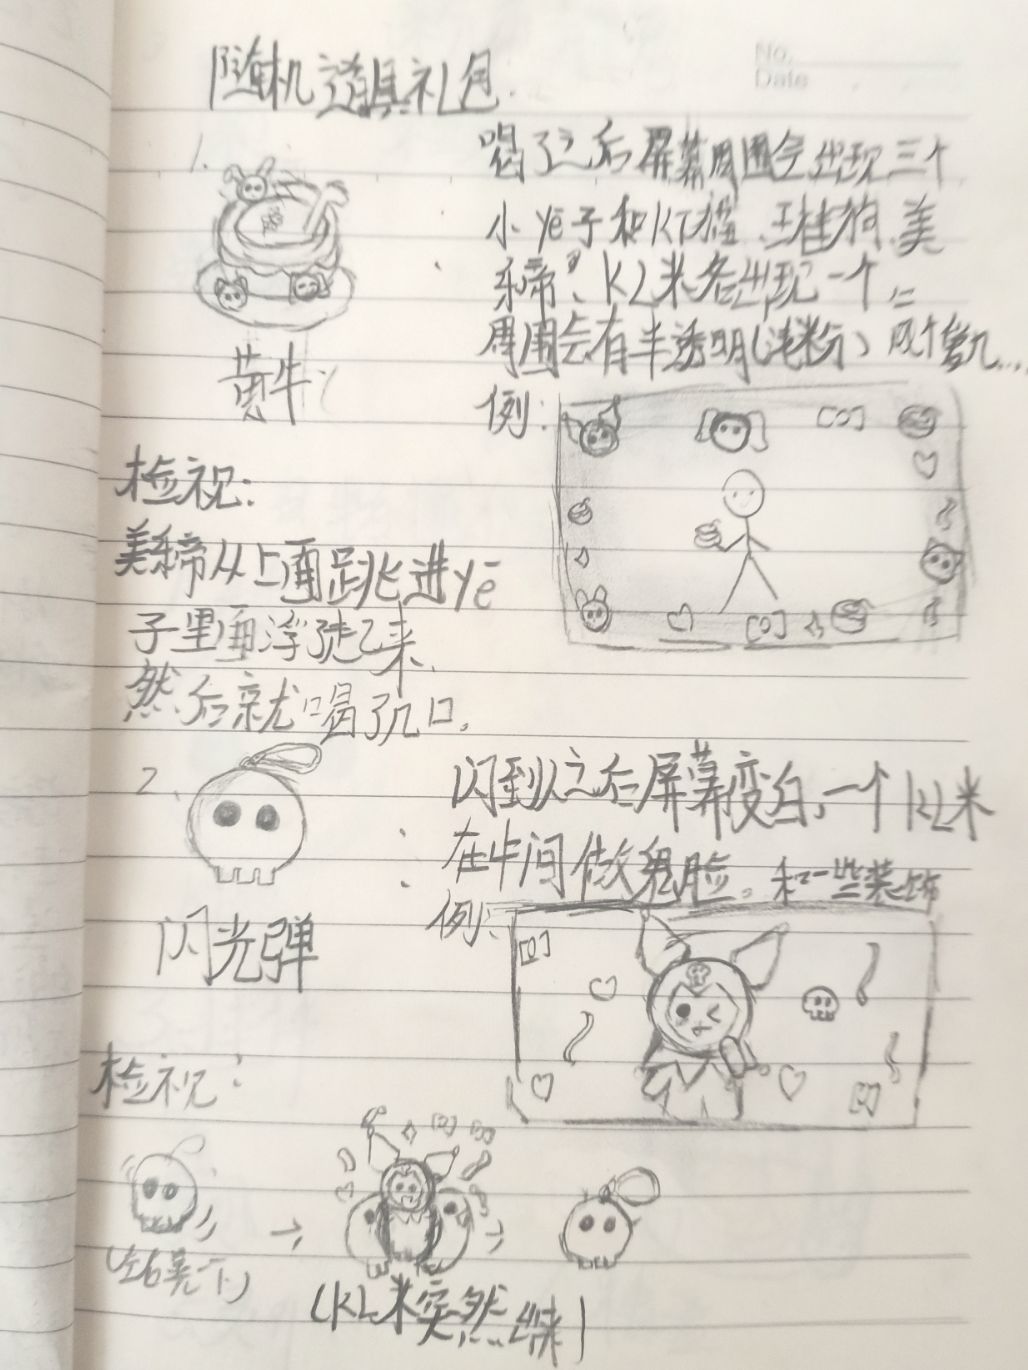 No.
Date
随机道具礼包.
1.
喝了之后屏幕周围会出现三个
小yē子和KT猫、玉桂狗、美
乐蒂、KL米各出现一个。
周围会有半透明(淡粉)
黄牛
例:
检视:
美乐蒂从上面跳进yē
子里面浮起来.
然后就喝了几口.
2.
闪到以之后屏幕变白,一个KL米
在中间做鬼脸。和一些装饰
例:
闪光弹
检视:
(左右晃一下)
(KL米突然出来)